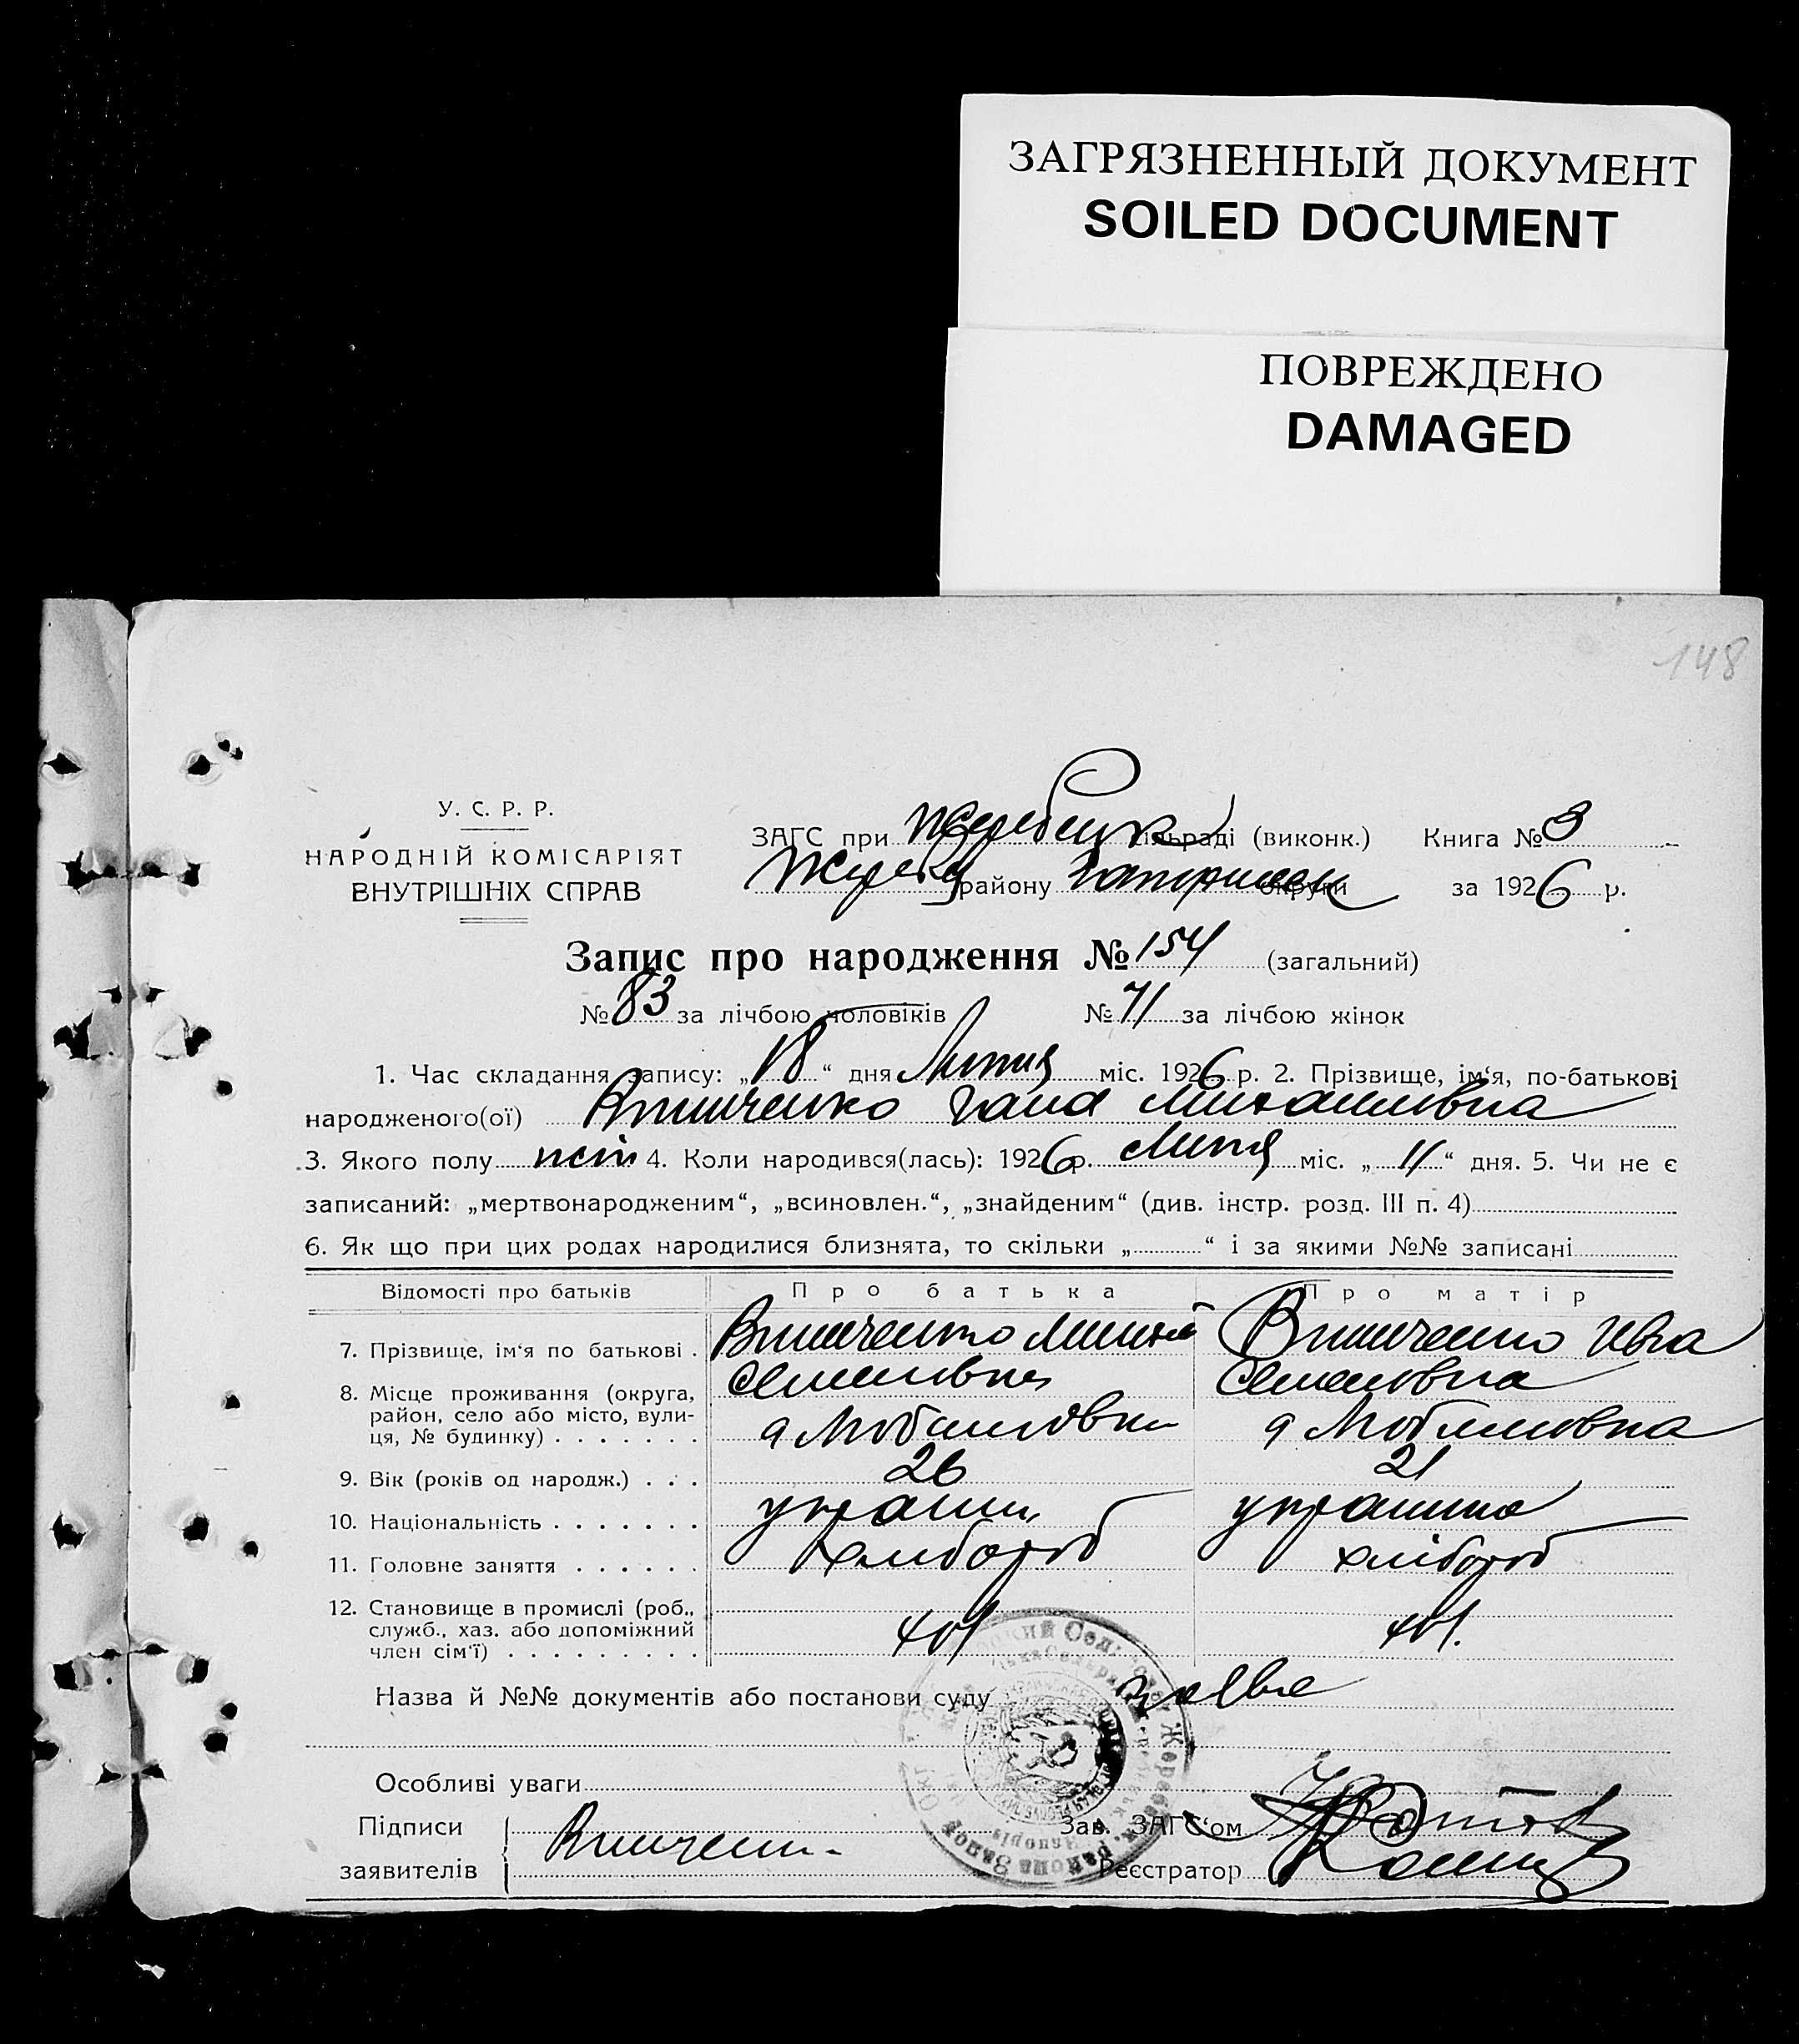 ЗАГРЯЗНЕННЫЙ ДОКУМЕНТ
SOILED DOCUMENT
ПОВРЕЖДЕНО
DAMAGED
148
У. С. Р. Р.
НАРОДНІЙ КОМІСАРІЯТ
ВНУТРІШНІХ СПРАВ
ЗАГС при Жеребецк сільраді (виконк.) Книга № 3
району округи за 1926 р.
Запис про народження № 154 (загальний)
№ 83 за лічбою чоловіків № 71 за лічбою жінок
1. Час складання запису: „18“ дня Липня міс. 1926 р. 2. Прізвище, ім‘я, по-батькові
народженого(ої) Винниченко Гана Михайлівна
3. Якого полу жін 4. Коли народився(лась): 1926 р. Липня міс. „11“ дня. 5. Чи не є
записаний: „мертвонародженим“, „всиновлен.“, „знайденим“ (див. інстр. розд. III п. 4)
6. Як що при цих родах народилися близнята, то скільки „ “ і за якими №№ записані
Відомості про батьків Про батька Про матір
7. Прізвище, ім‘я по батькові .
8. Місце проживання (округа,
район, село або місто, вули-
ця, № будинку) . . . . . . .
9. Вік (років од народж.) . . . 26 21
10. Національність . . . . . . . україн. українка
11. Головне заняття . . . . . . хлібороб хлібороб
12. Становище в промислі (роб.,
служб., хаз. або допоміжний
член сім‘ї) . . . . . . . . .
Назва й №№ документів або постанови суду заява
Особливі уваги
Підписи
заявителів
Зав. ЗАГС‘ом
Реєстратор